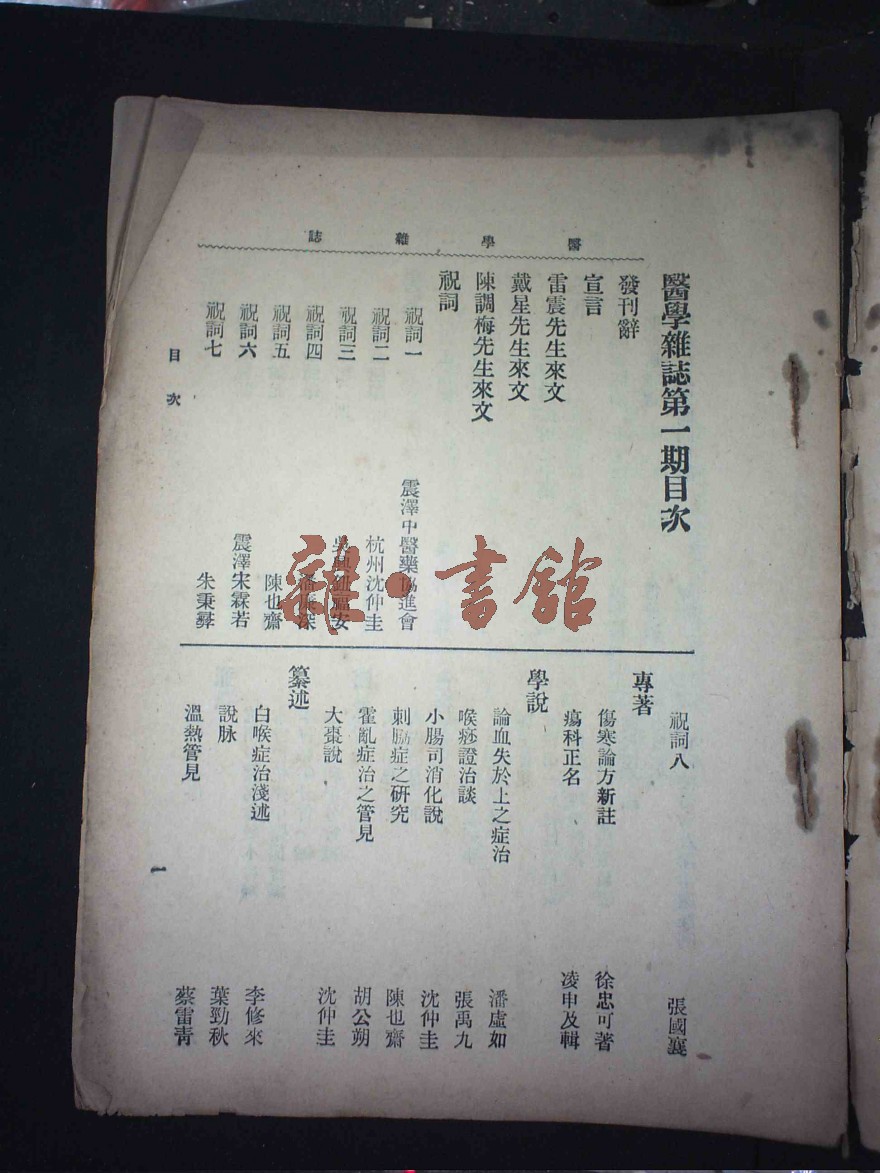 醫學雜誌
醫學雜誌第一期目次
發刊辭
宣言
雷震先生來文
戴星先生來文
陳調梅先生來文
祝詞
祝詞一 震澤中醫藥協進會
祝詞二 杭州沈仲圭
祝詞三 安
祝詞四 深
祝詞五 陳也齋
祝詞六 震澤宋霖若
祝詞七 朱秉彛
祝詞八 張國襄
專著
傷寒論方新註 徐忠可著
瘍科正名 凌申及輯
學說
論血失於上之症治 潘虛如
喉痧證治談 張禹九
小腸司消化說 沈仲圭
刺腸症之研究 陳也齋
霍亂症治之管見 胡公朔
大棗說 沈仲圭
纂述
白喉症治淺述 李修來
說脉 葉勁秋
溫熱管見 蔡雷青
目次
一
雜·書館